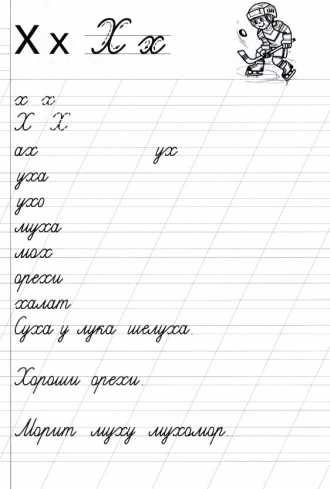 Х х Х х
х х
Х Х
ах ух
уха
ухо
муха
мох
орехи
халат
Суха у лука шелуха.
Хороши орехи.
Морит муху мухомор.